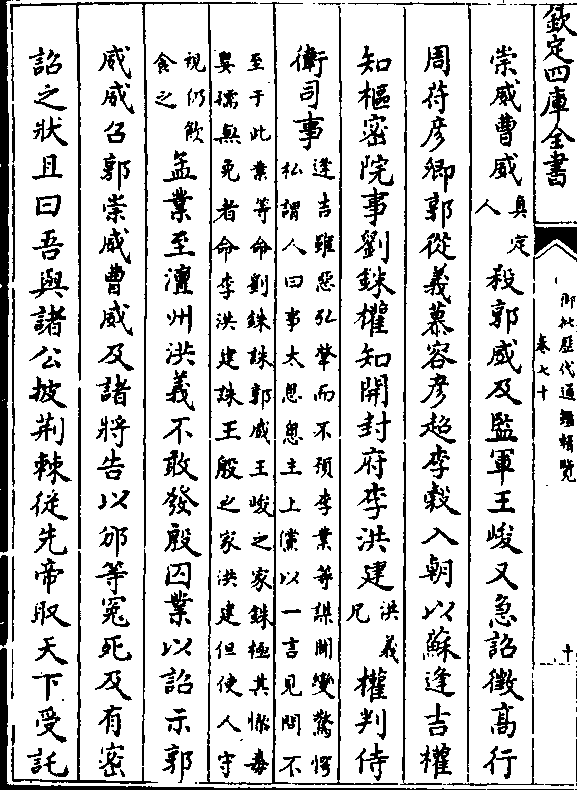 欽定四庫全書
御批歷代通鑑輯覽
卷七十
十
崇威曹威真定人殺郭威及監軍王峻又急詔徵高行
周符彥卿郭從義慕容彥超李穀入朝以蘇逢吉權
知樞密院事劉銖權知開封府李洪建洪義兄權判侍
衞司事
逢吉雖惡弘肇而不預李業等謀聞變驚愕
私謂人曰事太悤悤主上儻以一言見問不
至于此業等命劉銖誅郭威王峻之家銖極其慘毒
嬰孺無免者命李洪建誅王殷之家洪建但使人守
視仍飲
食之
孟業至澶州洪義不敢發殷囚業以詔示郭
威威召郭崇威曹威及諸將告以邠等冤死及有密
詔之狀且曰吾與諸公披荊棘從先帝取天下受託